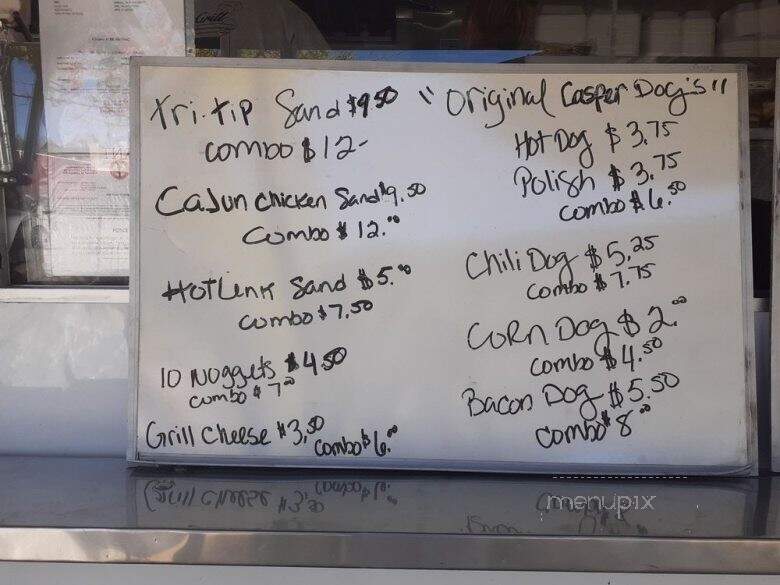 Grill
Tri-Tip Sand $9.50
Combo $12-
Cajun chicken Sand $9.50
Combo $12.00
HotLink Sand $5.00
Combo $7.50
10 Nuggets $4.50
Combo $7.00
Grill Cheese $3.50
Combo $6.00
"Original Casper Dog's"
Hot Dog $3.75
Polish $3.75
Combo $6.50
Chili Dog $5.25
Combo $7.75
CORN Dog $2.00
Combo $4.50
Bacon Dog $5.50
Combo $8.00
menupix